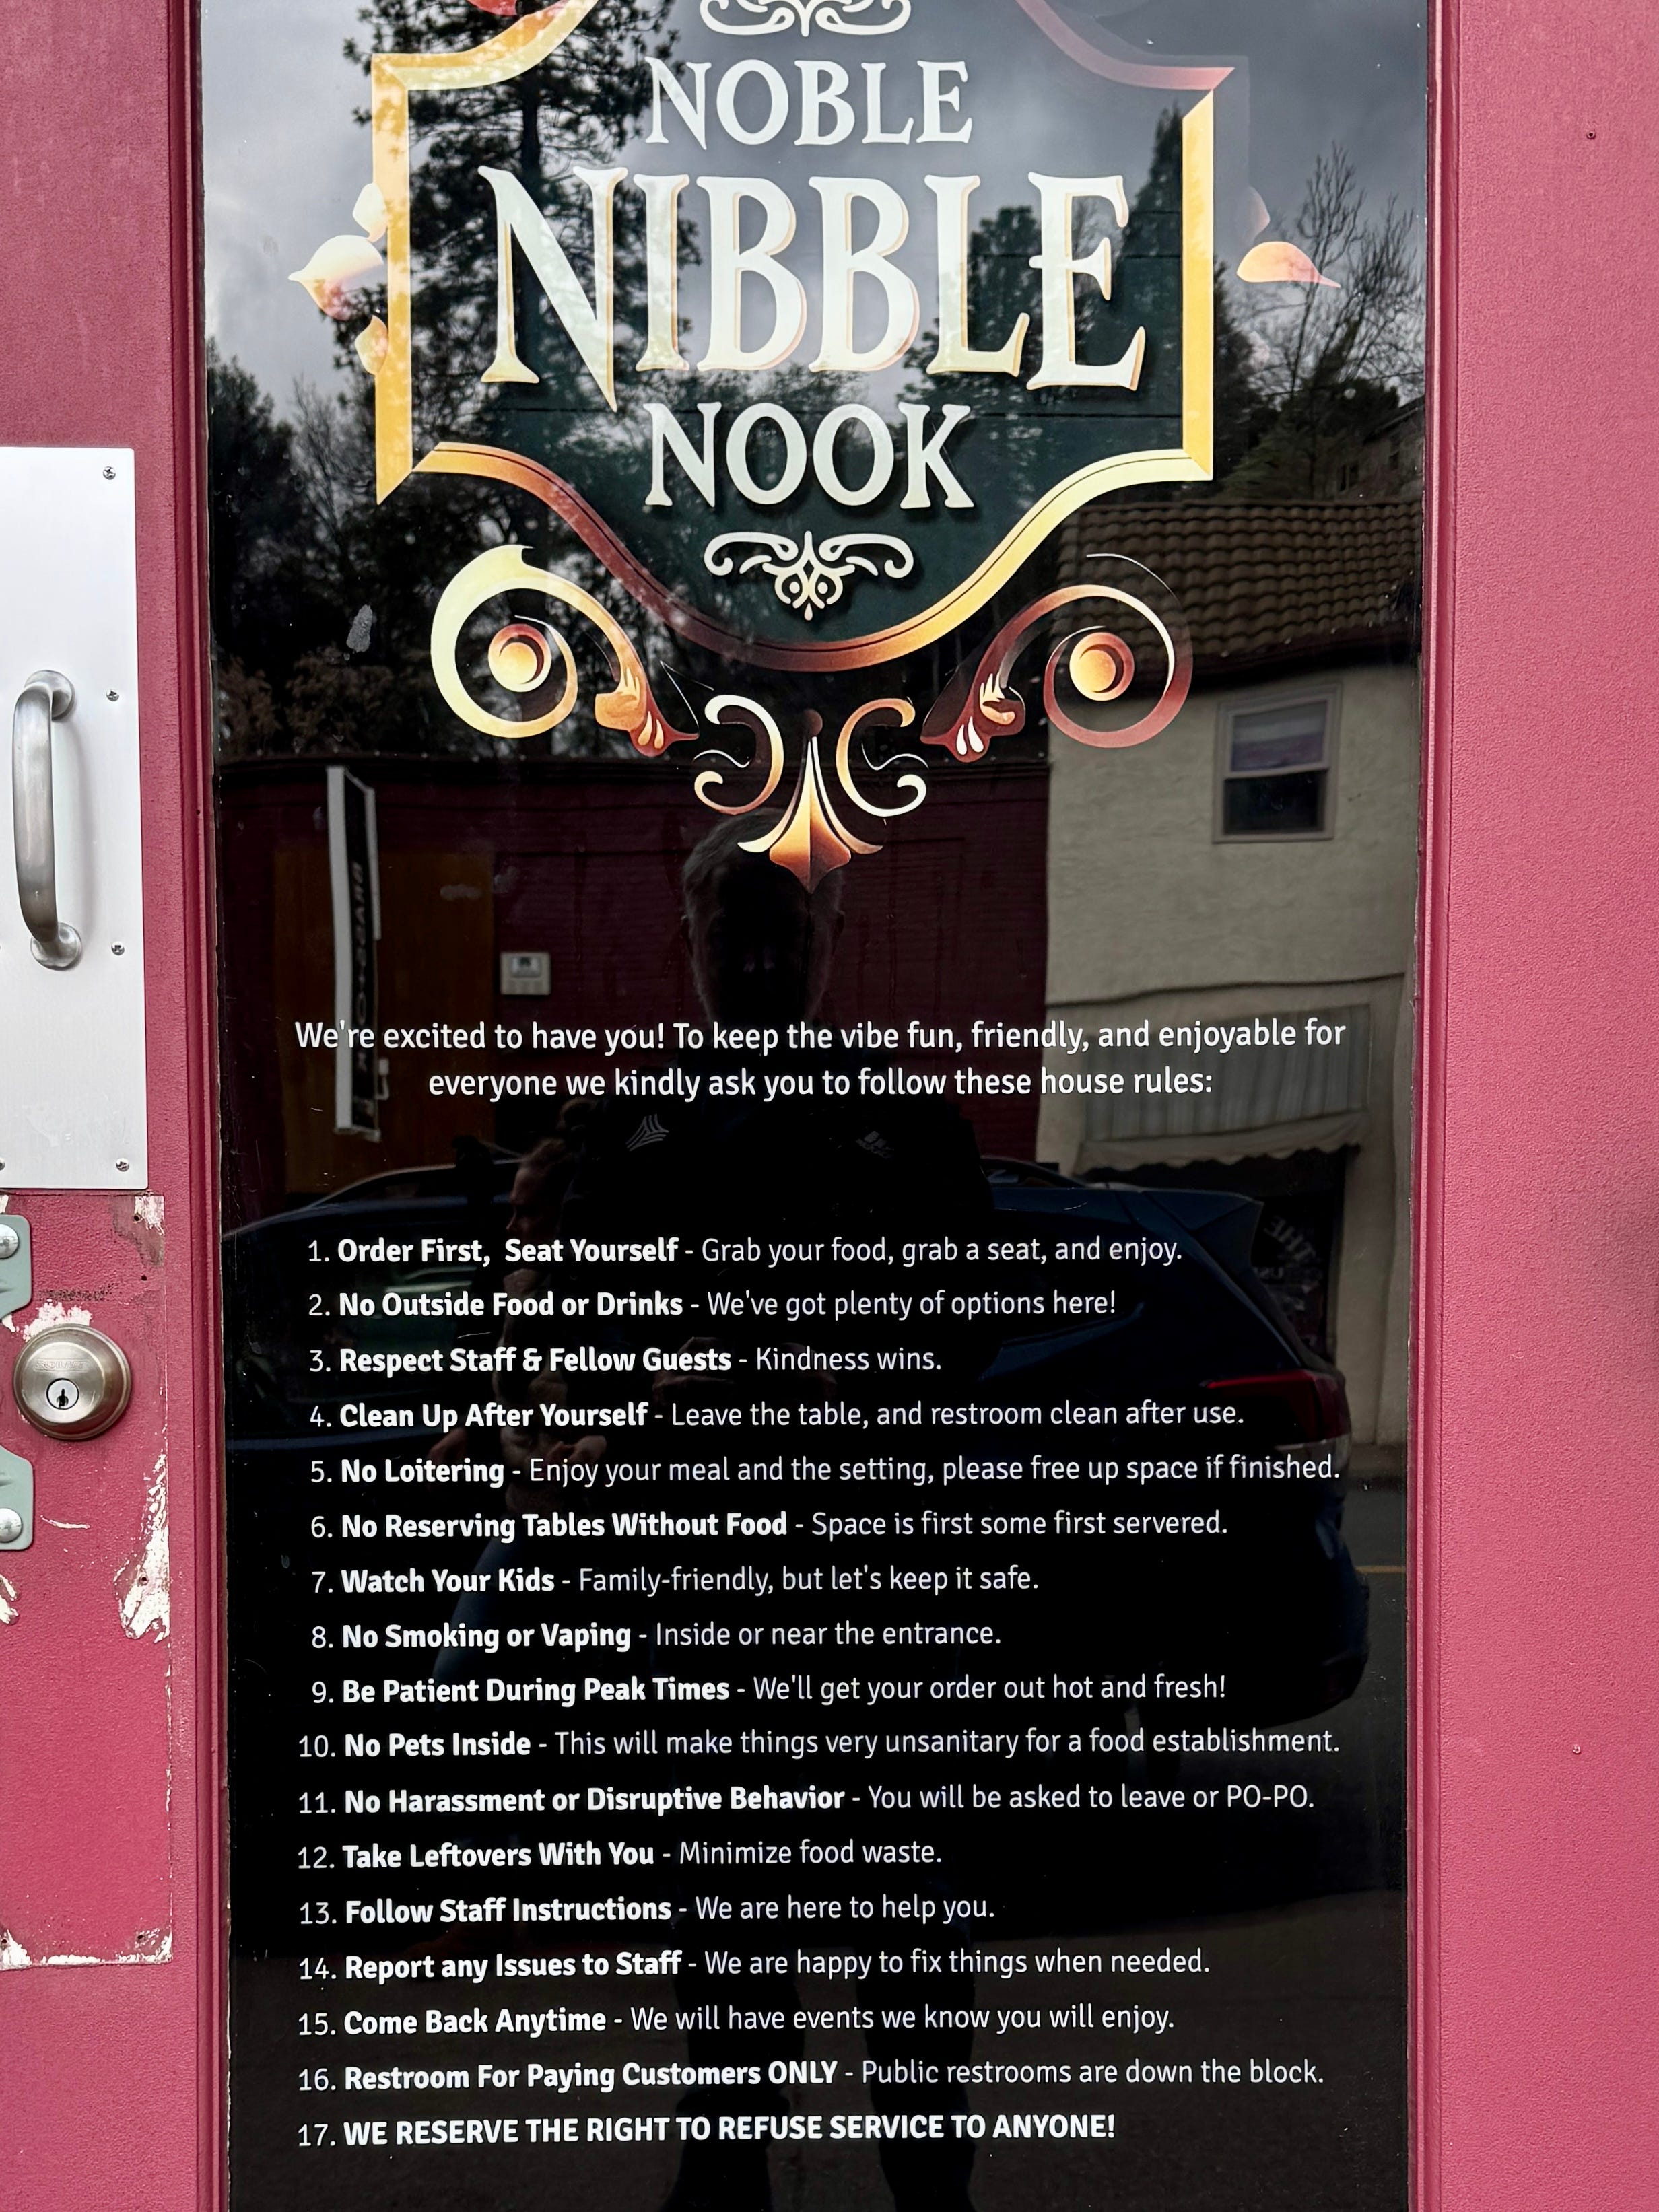 NOBLE
NIBBLE
NOOK
We're excited to have you! To keep the vibe fun, friendly, and enjoyable for
everyone we kindly ask you to follow these house rules:
1. Order First,  Seat Yourself - Grab your food, grab a seat, and enjoy.
2. No Outside Food or Drinks - We've got plenty of options here!
3. Respect Staff & Fellow Guests - Kindness wins.
4. Clean Up After Yourself - Leave the table, and restroom clean after use.
5. No Loitering - Enjoy your meal and the setting, please free up space if finished.
6. No Reserving Tables Without Food - Space is first some first servered.
7. Watch Your Kids - Family-friendly, but let's keep it safe.
8. No Smoking or Vaping - Inside or near the entrance.
9. Be Patient During Peak Times - We'll get your order out hot and fresh!
10. No Pets Inside - This will make things very unsanitary for a food establishment.
11. No Harassment or Disruptive Behavior - You will be asked to leave or PO-PO.
12. Take Leftovers With You - Minimize food waste.
13. Follow Staff Instructions - We are here to help you.
14. Report any Issues to Staff - We are happy to fix things when needed.
15. Come Back Anytime - We will have events we know you will enjoy.
16. Restroom For Paying Customers ONLY - Public restrooms are down the block.
17. WE RESERVE THE RIGHT TO REFUSE SERVICE TO ANYONE!